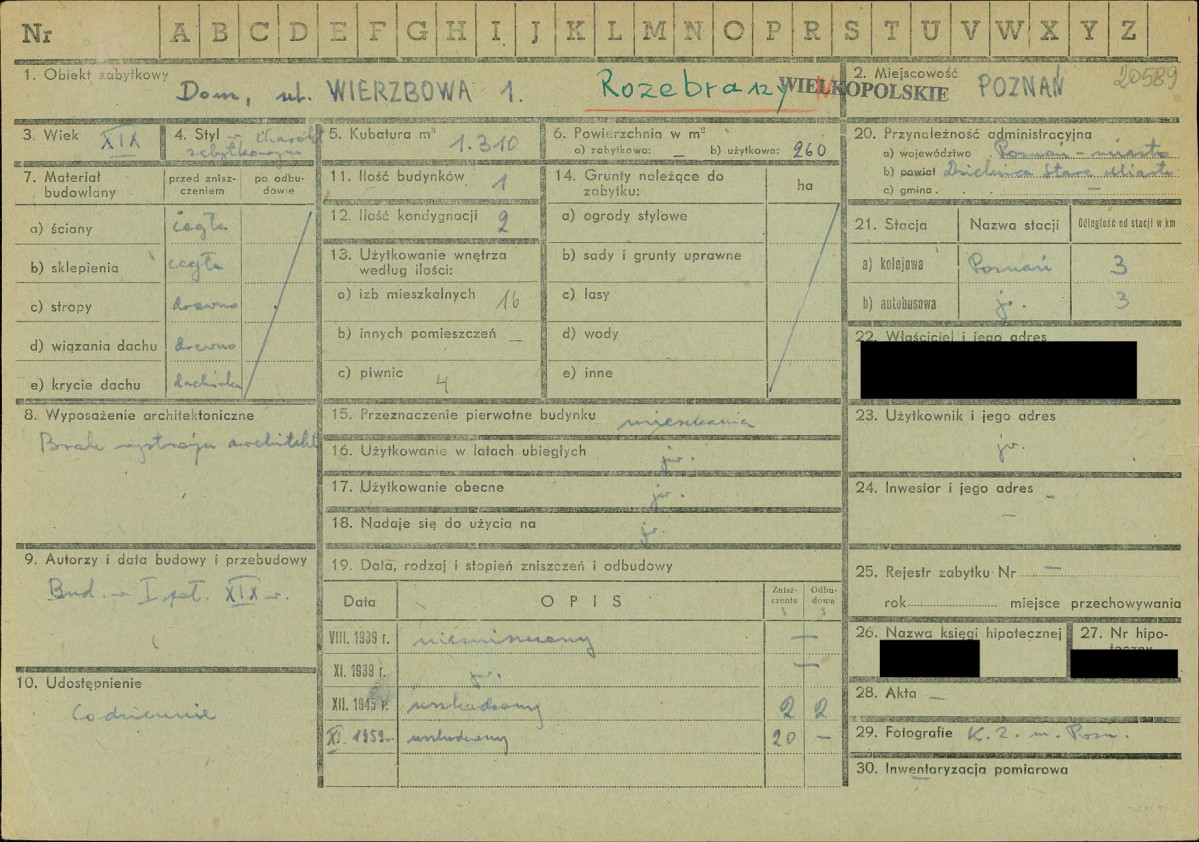 Nr A B C D E F G H I J K L M N O P R S T U V W X Y Z
1. Obiekt zabytkowy
Dom, ul. WIERZBOWA 1.
Rozebrany
WIELKOPOLSKIE
2. Miejscowość
POZNAŃ
20589
3. Wiek XIX
4. Styl
zabytkowym
5. Kubatura m³ 1.310
6. Powierzchnia w m²
a) zabytkowa: – b) użytkowa: 260
20. Przynależność administracyjna
a) województwo Poznań - miasto
b) powiat Dzielnica Stare Miasto
c) gmina . –
7. Materiał budowlany
przed zniszczeniem
po odbudowie
a) ściany cegła
b) sklepienia cegła
c) stropy drewno
d) wiązania dachu drewno
e) krycie dachu dachówka
11. Ilość budynków 1
12. Ilość kondygnacji 2
13. Użytkowanie wnętrza
według ilości:
a) izb mieszkalnych 16
b) innych pomieszczeń –
c) piwnic 4
14. Grunty należące do
zabytku:
ha
a) ogrody stylowe
b) sady i grunty uprawne
c) lasy
d) wody
e) inne
21. Stacja
Nazwa stacji
Odległość od stacji w km
a) kolejowa Poznań 3
b) autobusowa jw. 3
22. Właściciel i jego adres
8. Wyposażenie architektoniczne
Brak wystroju architekt
15. Przeznaczenie pierwotne budynku mieszkania
16. Użytkowanie w latach ubiegłych jw.
17. Użytkowanie obecne jw.
18. Nadaje się do użycia na jw.
23. Użytkownik i jego adres
jw.
24. Inwestor i jego adres –
–
9. Autorzy i data budowy i przebudowy
Bud. w I poł. XIX w.
19. Data, rodzaj i stopień zniszczeń i odbudowy
Data
OPIS
Zniszczenia %
Odbudowa %
VIII. 1939 r. niezniszczony –
XI. 1939 r. jw. –
XII. 1945 r. uszkodzony 2 2
XI. 1959 r. uszkodzony 20 –
25. Rejestr zabytku Nr –
rok miejsce przechowywania
26. Nazwa księgi hipotecznej
27. Nr hipoteczny
10. Udostępnienie
Codziennie
28. Akta –
29. Fotografie K. Z. m. Pozn.
30. Inwentaryzacja pomiarowa
–